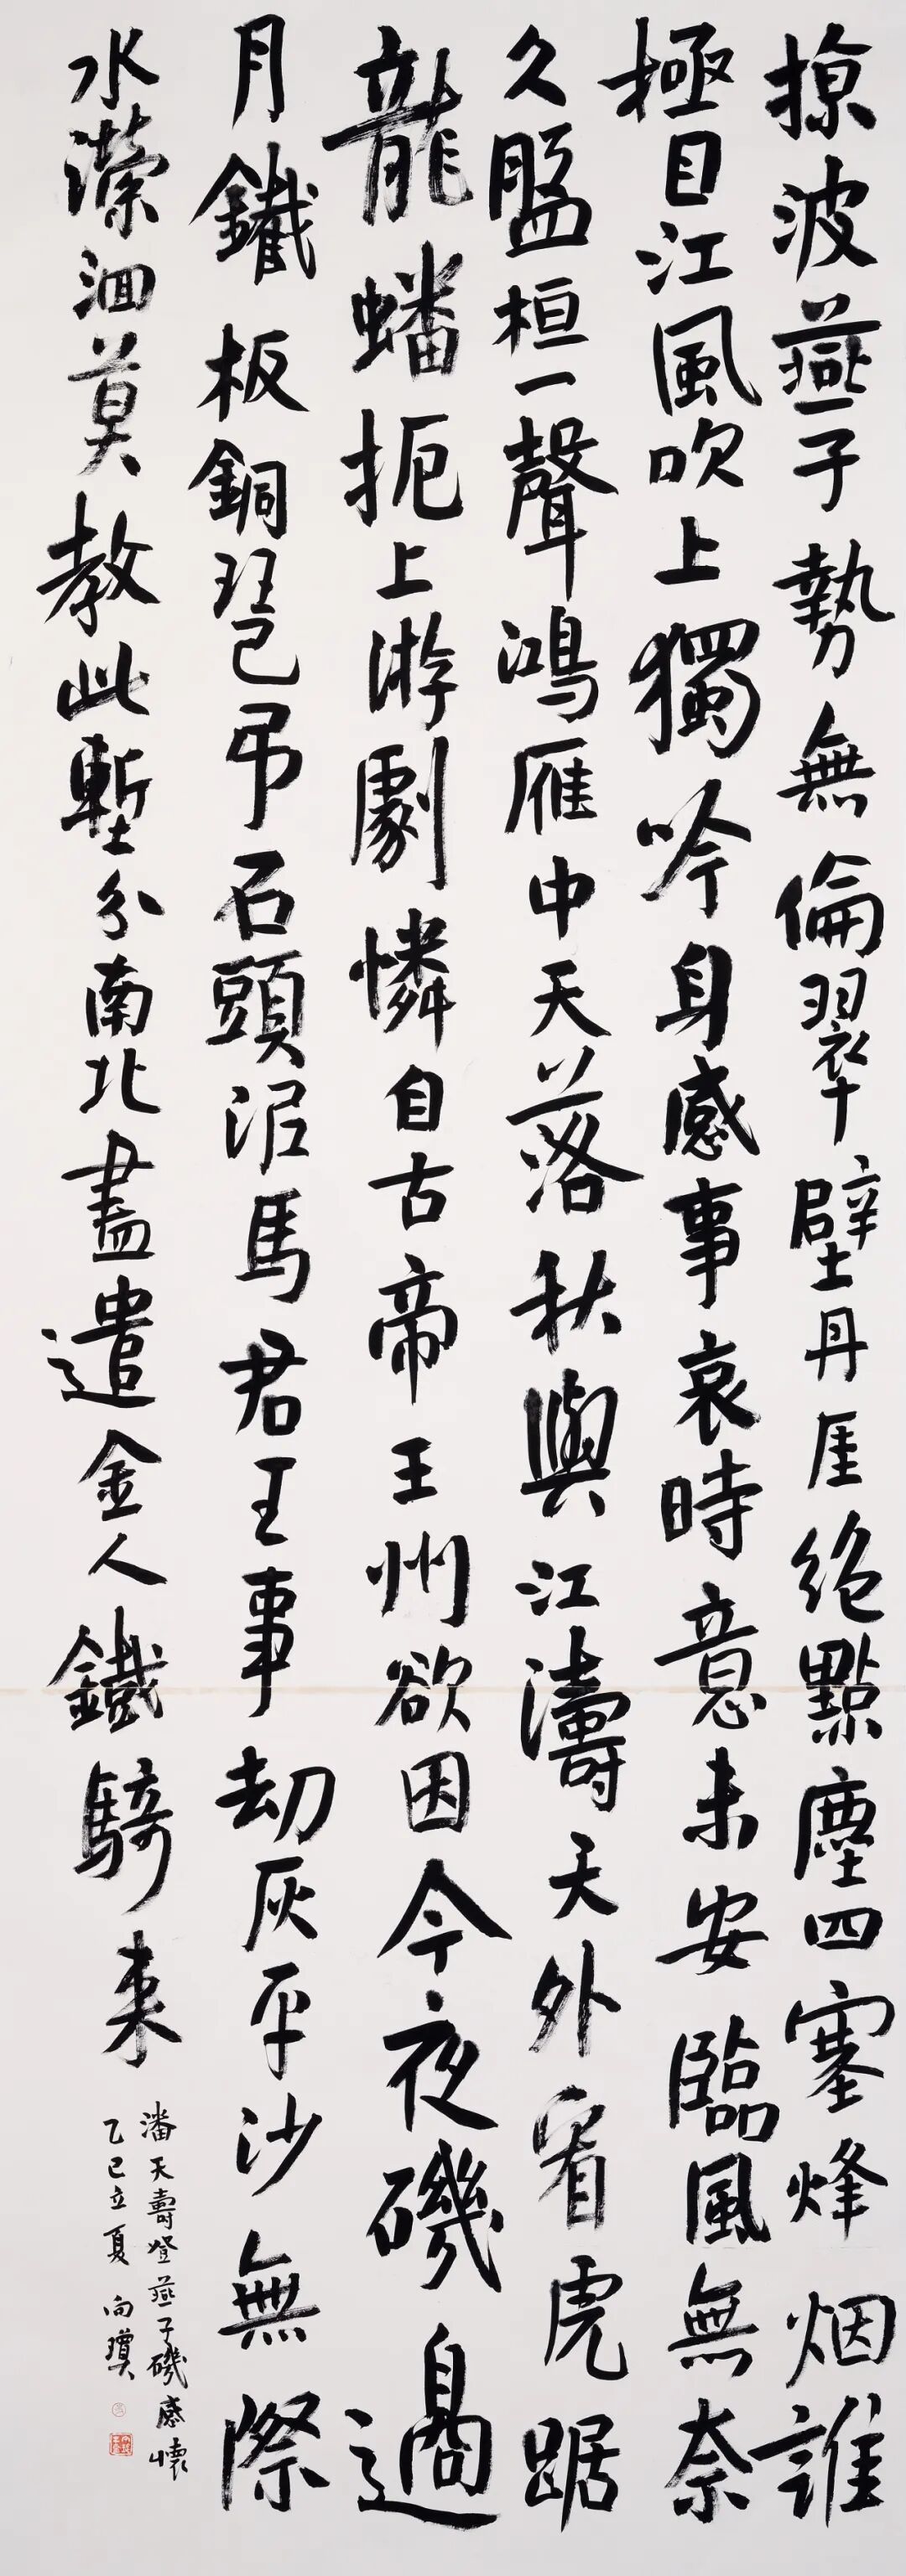 掠波燕子勢無倫翠壁丹厓絶點塵四塞烽烟誰
極目江風吹上獨吟身感事哀時意未安臨風無奈
久盤桓一聲鴻雁中天落秋與江濤天外看虎踞
龍蟠扼上游劇憐自古帝王州欲因今夜磯邊
月鐵板銅琶弔石頭泥馬君王事劫灰平沙無際
水瀠洄莫教此塹分南北盡遣金人鐵騎来
潘天壽登燕子磯感懷
乙巳立夏 向瓊